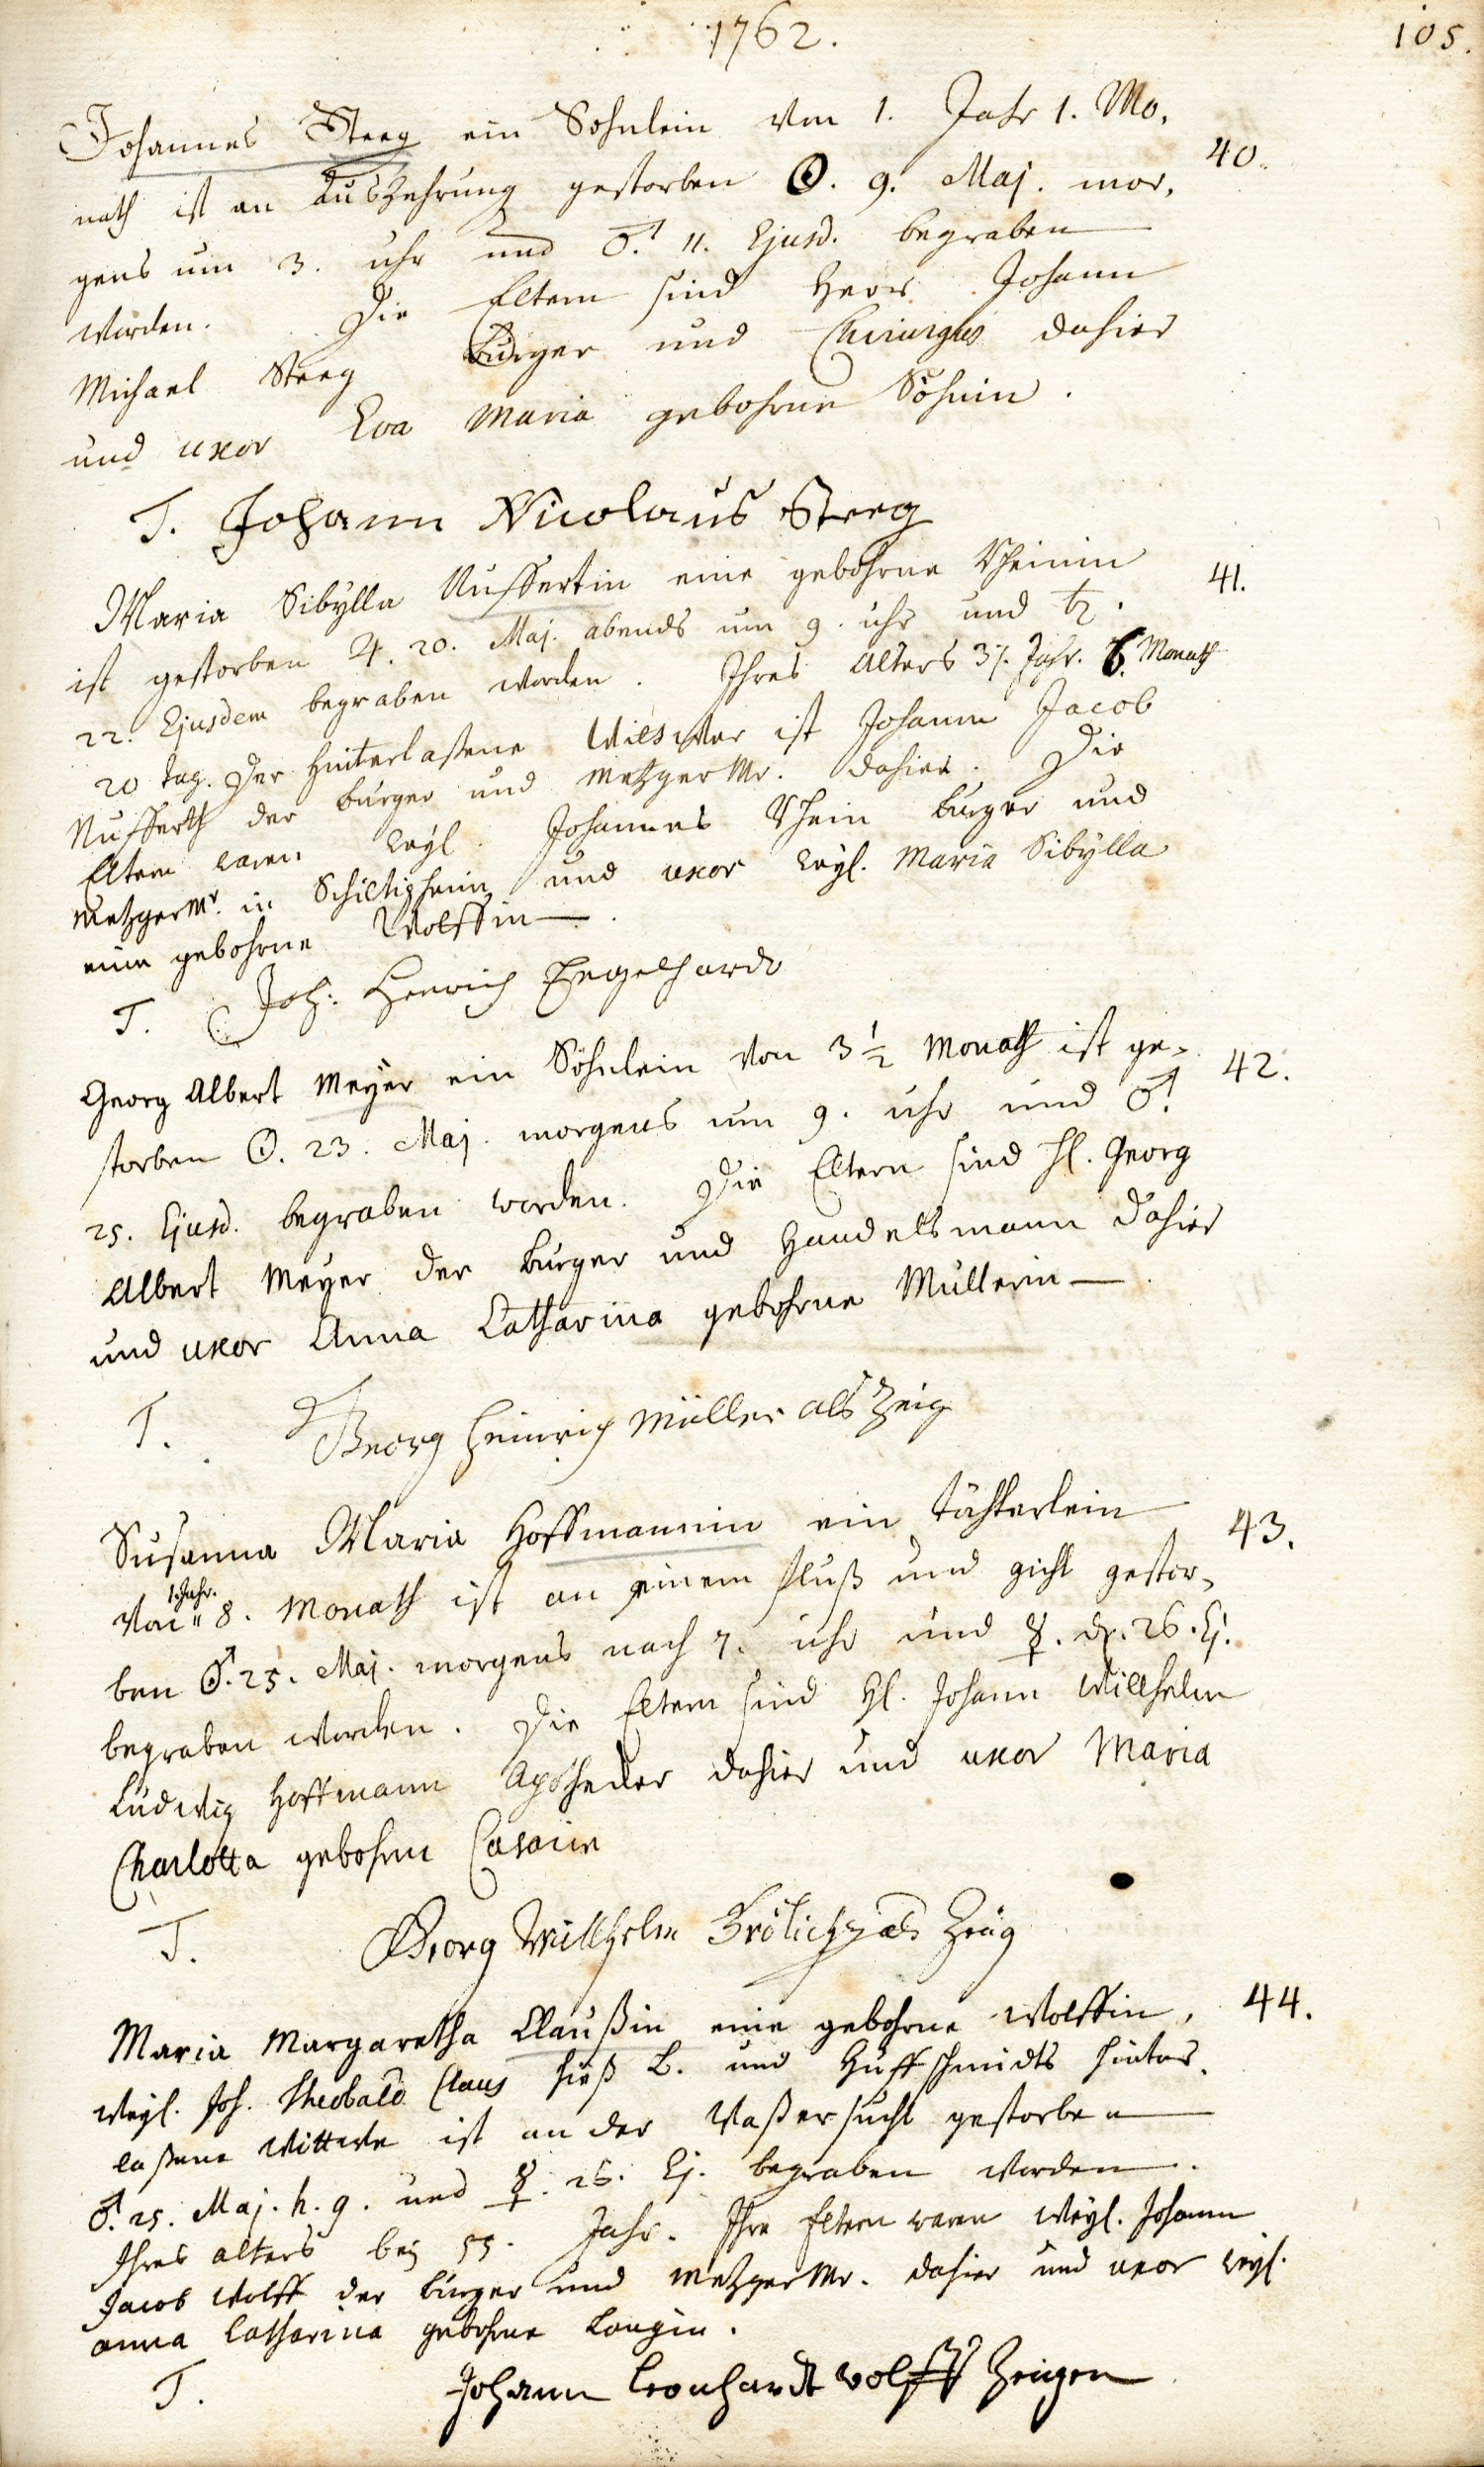 1762.
105.
Johannes Steeg ein Söhnlein von 1. Jahr 1. Mo,
40.
nath ist an Auszehrung gestorben ☉. 9. Maj. mor,
gens um 3. uhr und ♂. 11. Ejusd. begraben
worden. Die Eltern sind Herr Johann
Michael Steeg Burger und Chirurgus dahier
und uxor Eva Maria gebohrne Söhnin.
T. Johann Nicolaus Steeg
Maria Sibylla Nussertin eine gebohrne Rheinin
41.
ist gestorben ♃. 20. Maj. abends um 9. uhr und ♄.
22. Ejusdem begraben worden. Ihres Alters 37. Jahr. 6. Monath
20 tag. Der hinterlaßene Wittwer ist Johann Jacob
Nusserth der burger und Metzger Mr. dahier. Die
Eltern waren weyl. Johannes Rhein burger und
Metzger Mr. in Schiltigheim und uxor weyl. Maria Sibylla
eine gebohrne Wolffin.
T. Joh: Henrich Engelhardt
Georg Albert Meyer ein Söhnlein von 3 1/2 Monath ist ge-
42.
storben ☉. 23. Maj. morgens um 9. uhr und ♂.
25. Ejusd. begraben worden. Die Eltern sind H. Georg
Albert Meyer der burger und Handelsmann dahier
und uxor Anna Catharina gebohrne Müllerin.
T. Georg Heinrich Müller als Zeig
Susanna Maria Hoffmannin ein Töchterlein
43.
von 1. Jahr. 8. Monath ist an einem fluß und gicht gestor-
ben ♂. 25. Maj. morgens nach 7. uhr und ☿. d. 26. Ej.
begraben worden. Die Eltern sind H. Johann Willhelm
Ludwig Hoffmann Apothecker dahier und uxor Maria
Charlotta gebohrne
T. Georg Willhelm Frölich als Zeüg
Maria Margaretha Claußin eine gebohrne Wolffin,
44.
weyl. Joh. Theobald Claus hies. B. und Huffschmidts hinter-
laßene Wittwe ist an der Waßersucht gestorben
♂. 25. Maj. h. 9. und ☿. 26. Ej. begraben worden.
Ihres alters bej 55. Jahr. Ihre Eltern waren Weyl. Johann
Jacob Wolff der burger und Metzger Mr. dahier und uxor weyl.
Anna Catharina gebohrne Langin.
T. Johann Leonhardt Wolff Zeugen